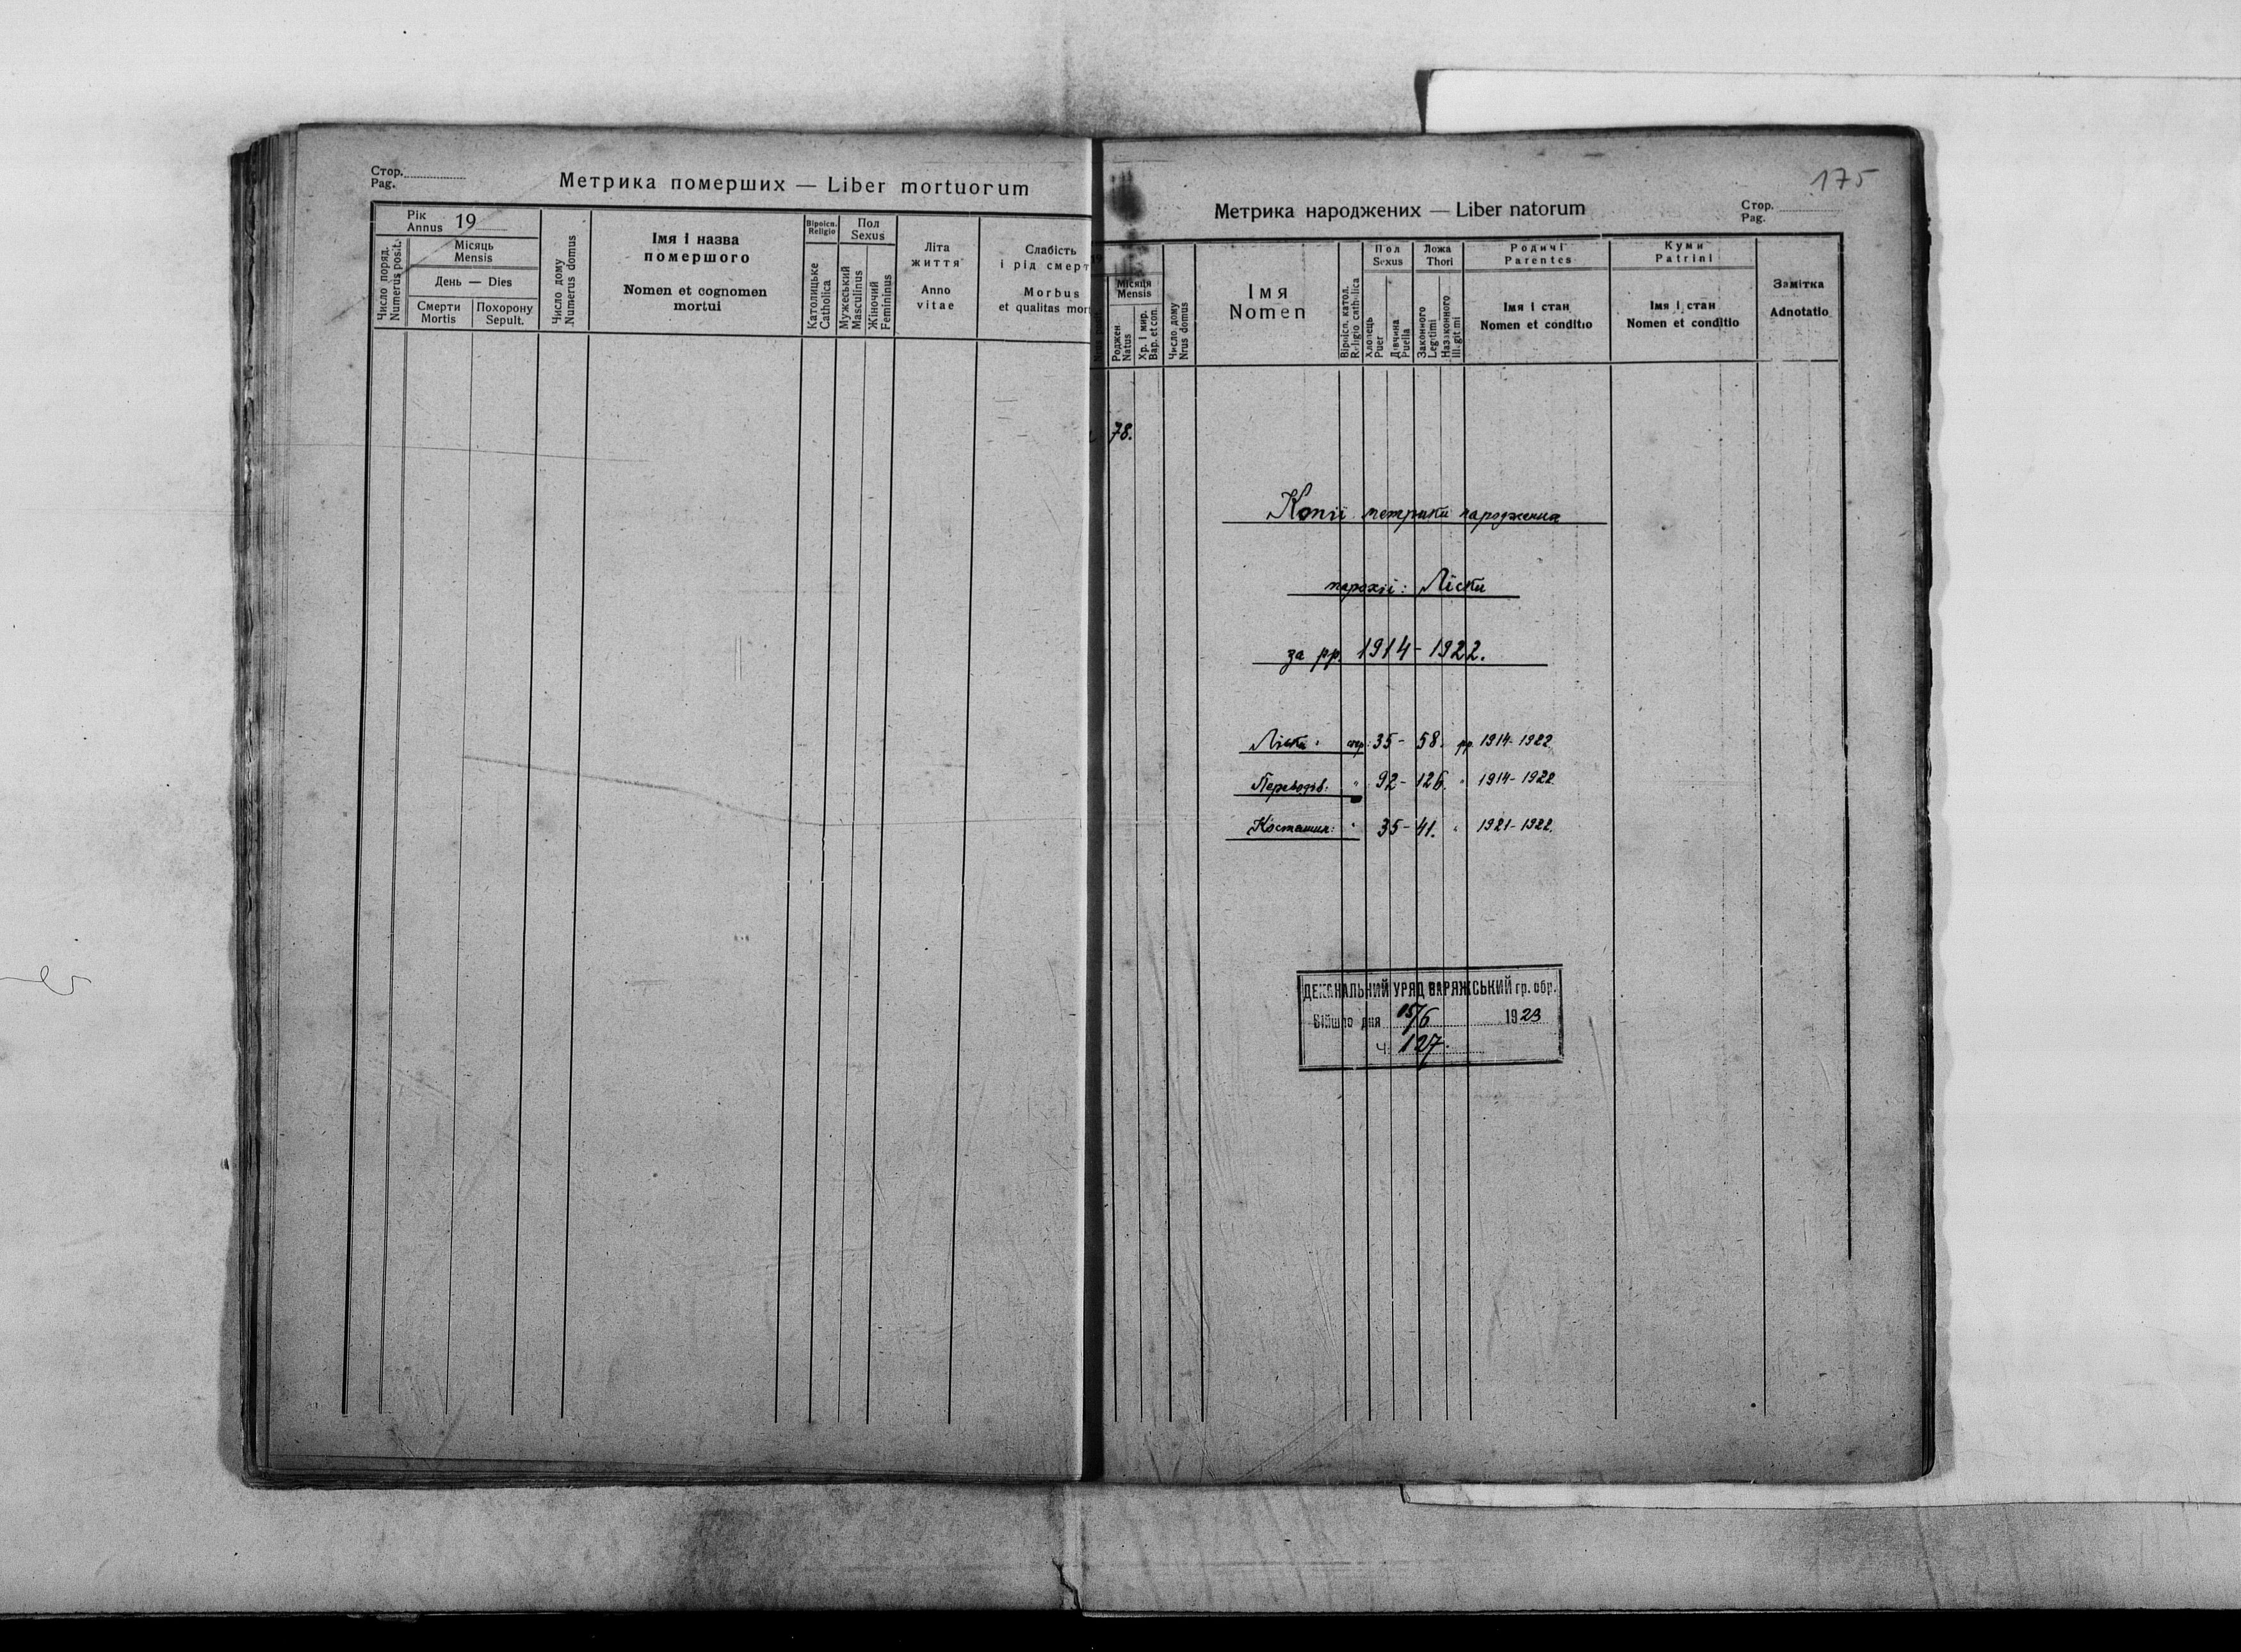 Стор.
Pag.
Метрика померших — Liber mortuorum
Рік
Annus 19
Число поряд.
Numerus posit.
Місяць
Mensis
День — Dies
Смерти
Mortis
Похорону
Sepult.
Число дому
Numerus domus
Імя і назва
помершого
Nomen et cognomen
mortui
Віроісп.
Religio
Католицьке
Catholica
Пол
Sexus
Мужеський
Masculinus
Жіночий
Femininus
Літа
життя
Anno
vitae
Слабість
і рід смерт
Morbus
et qualitas mor
175
Метрика народжених — Liber natorum
Стор.
Pag.
Місяця
Mensis
Роджен
Natus
Хр. і мир.
Bap. et con.
Число дому
Nrus domus
Імя
Nomen
Віроісп. катол.
Religio catholica
Пол
Sexus
Хлопець
Puer
Дівчина
Puella
Ложа
Thori
Законного
Legitimi
Незаконного
Illegitimi
Родичі
Parentes
Імя і стан
Nomen et conditio
Куми
Patrini
Імя і стан
Nomen et conditio
Замітка
Adnotatio
78.
Копії метрики народження
парохії: Ліски
за рр. 1914-1922.
Ліски: стр: 35-58. рр. 1914-1922
Переводів: " 92-126. " 1914-1922.
Косташин: " 35-41. " 1921-1922.
ДЕКАНАЛЬНИЙ УРЯД ВАРЯЖСЬКИЙ гр. обр.
Війшло дня 15/6 1923
Ч. 127.